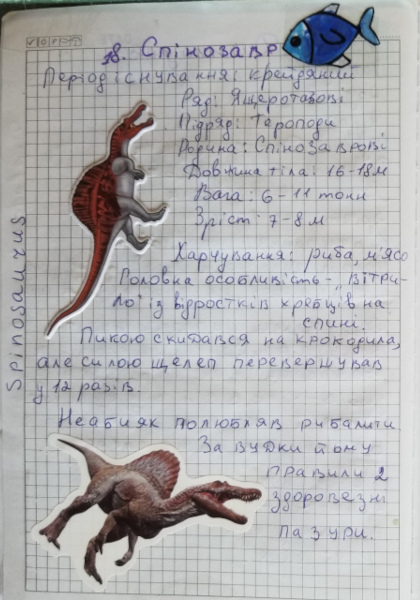 18. Спінозавр
Період існування: крейдяний
Ряд: Ящеротазові
Підряд: Тероподи
Родина: Спінозаврові
Довжина тіла: 16-18м
Вага: 6-11 тонн
Зріст: 7-8 м
Харчування: риба, м'ясо
Головна особливість - "вітри-
ло" із відростків хребців на
спині.
Пикою скидався на крокодила,
але силою щелеп перевершував
у 12 разів.
Неабияк полюбляв рибалити
За вудки йому
правили 2
здоровезні
пазури.
Spinosaurus